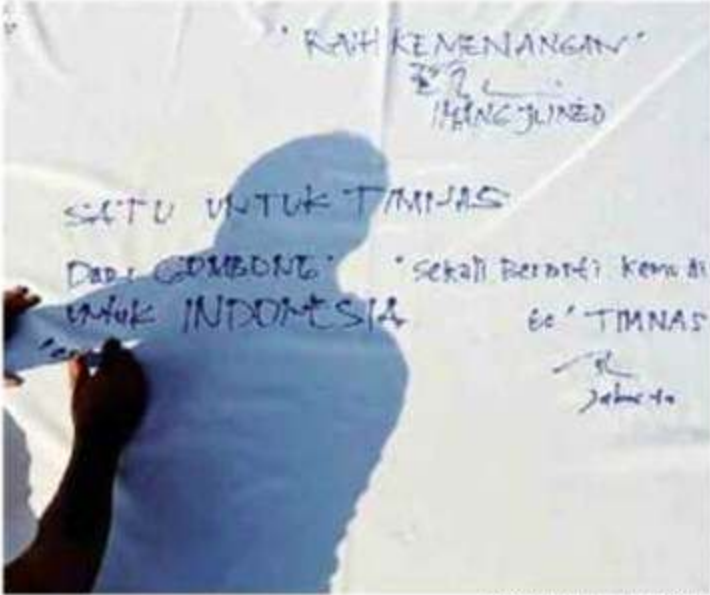 "RAIH KEMENANGAN"
SATU UNTUK TIMNAS
DARI GOMBONG
UNTUK INDONESIA
"Sekali Berarti Kemudi
GO" TIMNAS
Jakarta